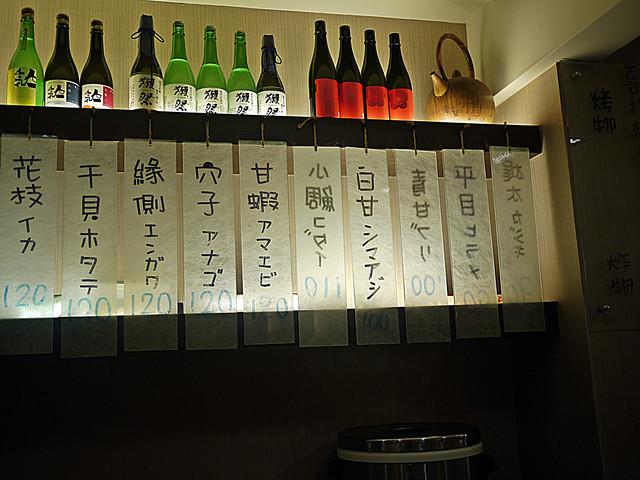 獺祭
獺祭
獺祭
獺祭
獺祭
花枝 イカ
120
干貝 ホタテ
120
緣側 エンガワ
120
穴子 アナゴ
120
甘蝦 アマエビ
120
小鯛 コダイ
110
白甘 シマアジ
100
青甘 ブリ
100
平目 ヒラメ
カジキ
烤物
炸物